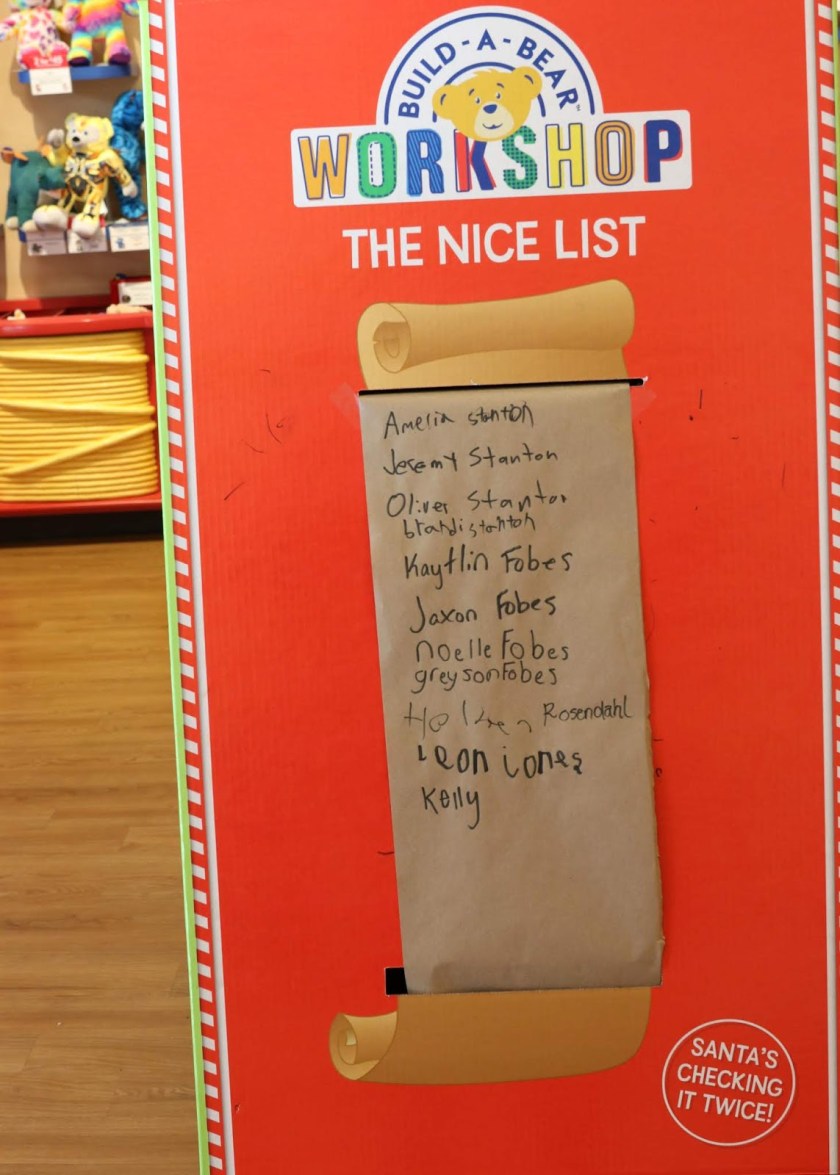 BUILD-A-BEAR
WORKSHOP
THE NICE LIST
Amelia Stanton
Jeremy Stanton
Oliver Stanton
brandistanton
Kaytlin Fobes
Jaxon Fobes
noelle Fobes
greysonFobes
Rosendahl
leon jones
Kelly
SANTA'S
CHECKING
IT TWICE!